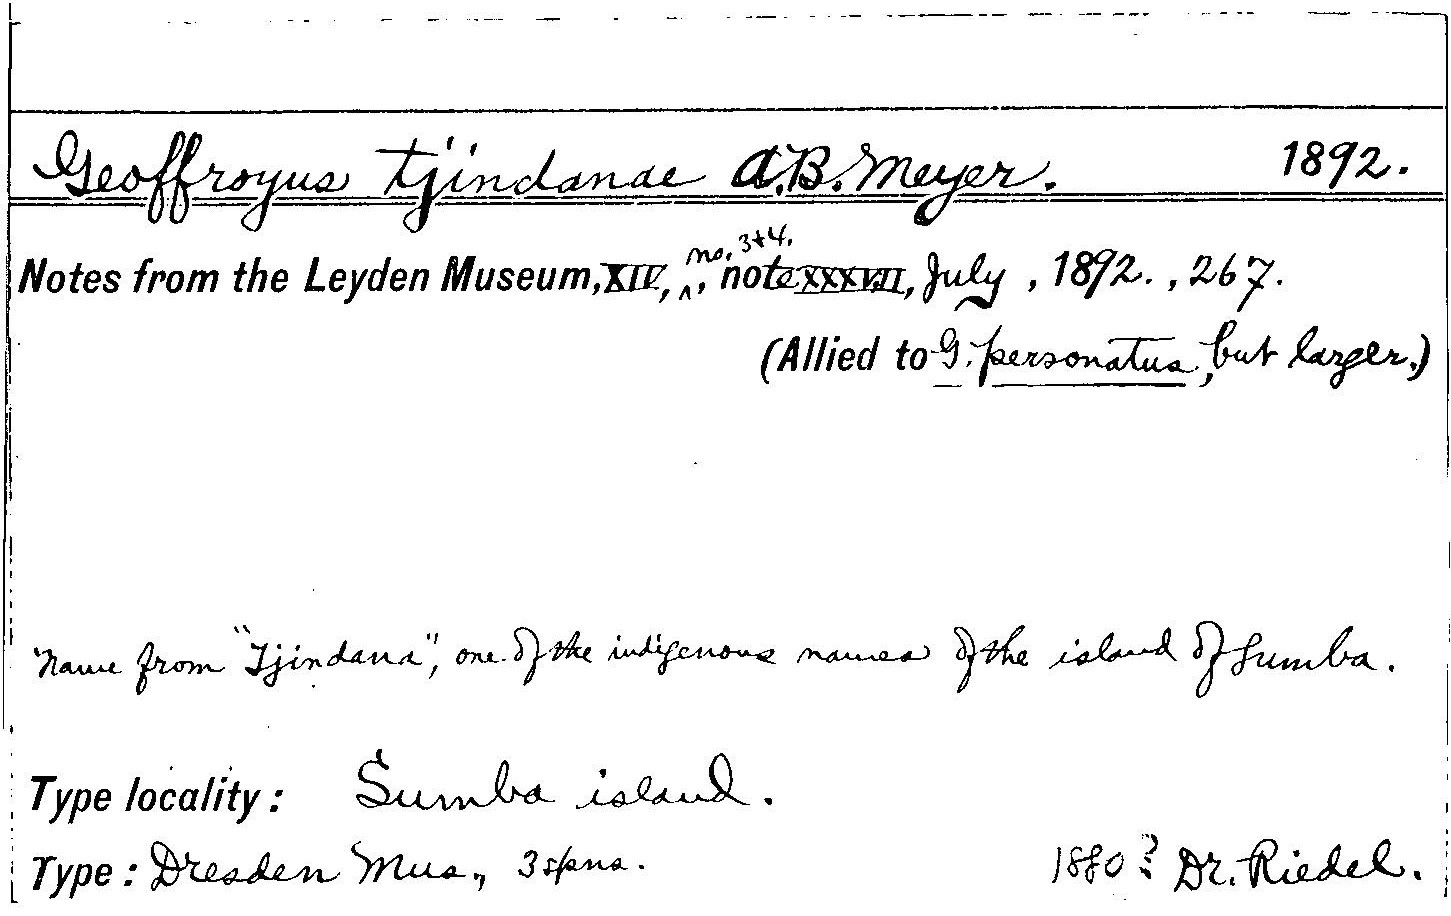 Geoffroyus tjindanae A.B. Meyer. 1892.
Notes from the Leyden Museum, XIV, no. 3+4, note XXXVII, July, 1892., 267.
(Allied to G. personatus, but larger.)
Name from "Tjindana", one of the indigenous names of the island of Sumba.
Type locality: Sumba island.
Type: Dresden Mus., 3 spns. 1880? Dr. Riedel.